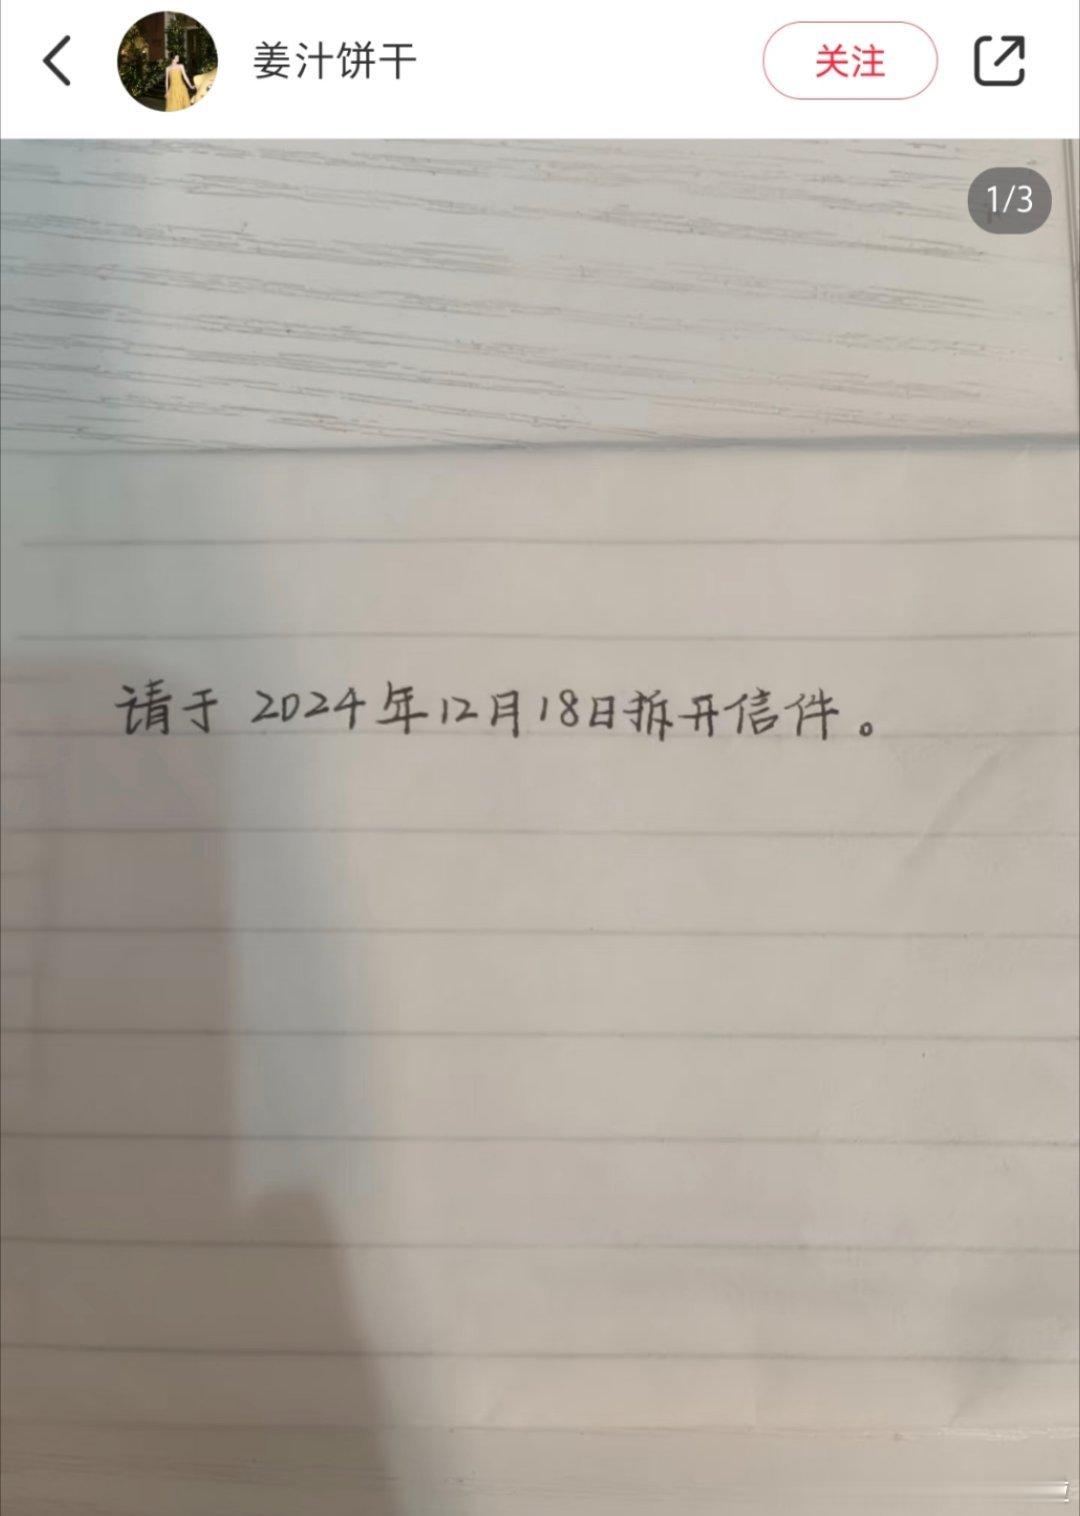 姜汁饼干
关注
1/3
请于 2024年12月18日拆开信件。